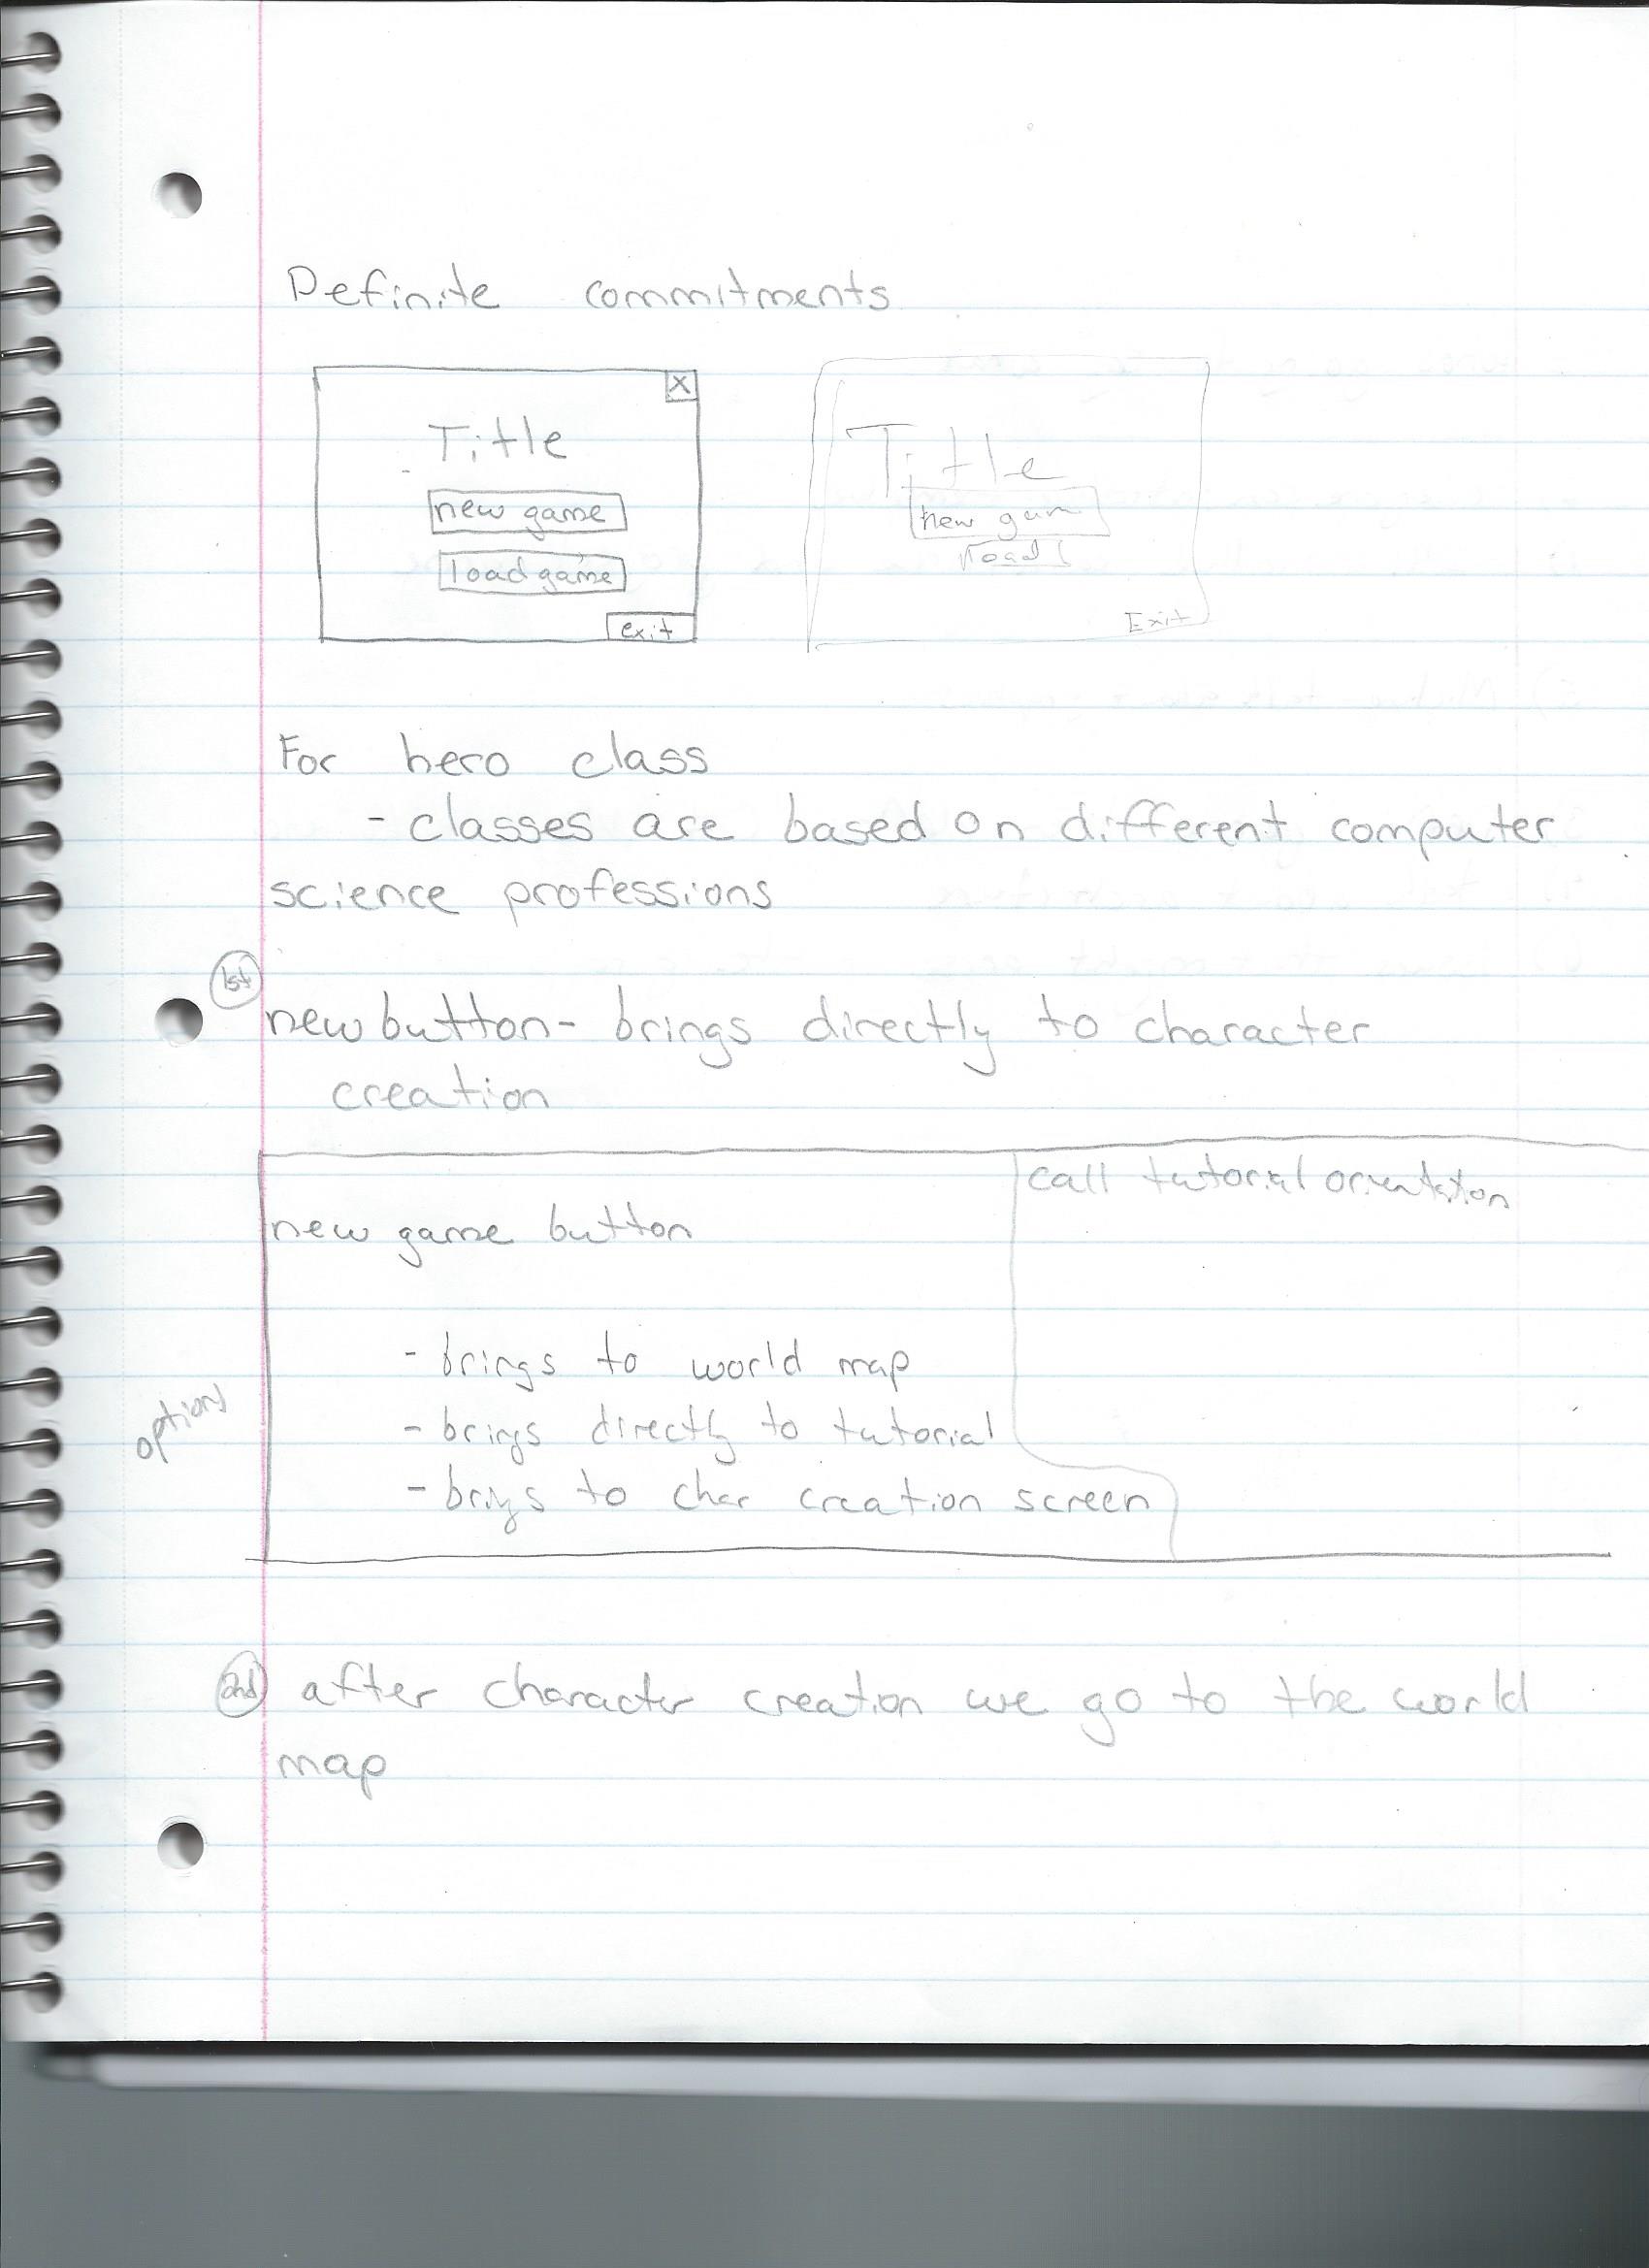 Definite commitments
X
Title
new game
load game
exit
Title
new gam
load
Exit
For hero class
- classes are based on different computer
science professions
1st
new button - brings directly to character
creation
call tutorial orientation
new game button
- brings to world map
- brings directly to tutorial
- brings to char creation screen
options
2nd after character creation we go to the world
map